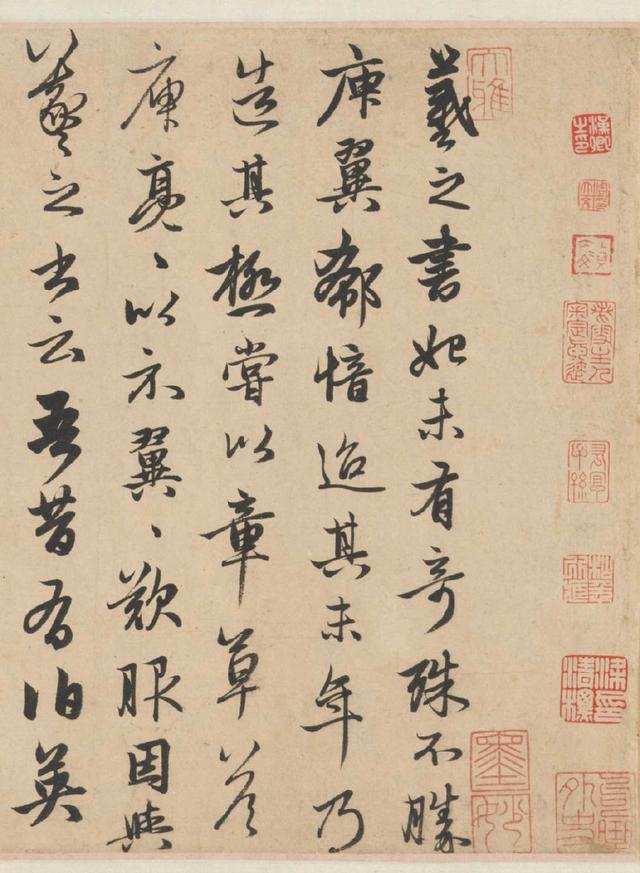 羲之書始未有奇殊不勝
庾翼郗愔迨其末年乃
造其極嘗以章草答
庾亮〻以示翼〻歎服因與
羲之書云吾昔有伯英
大雅
墨妙